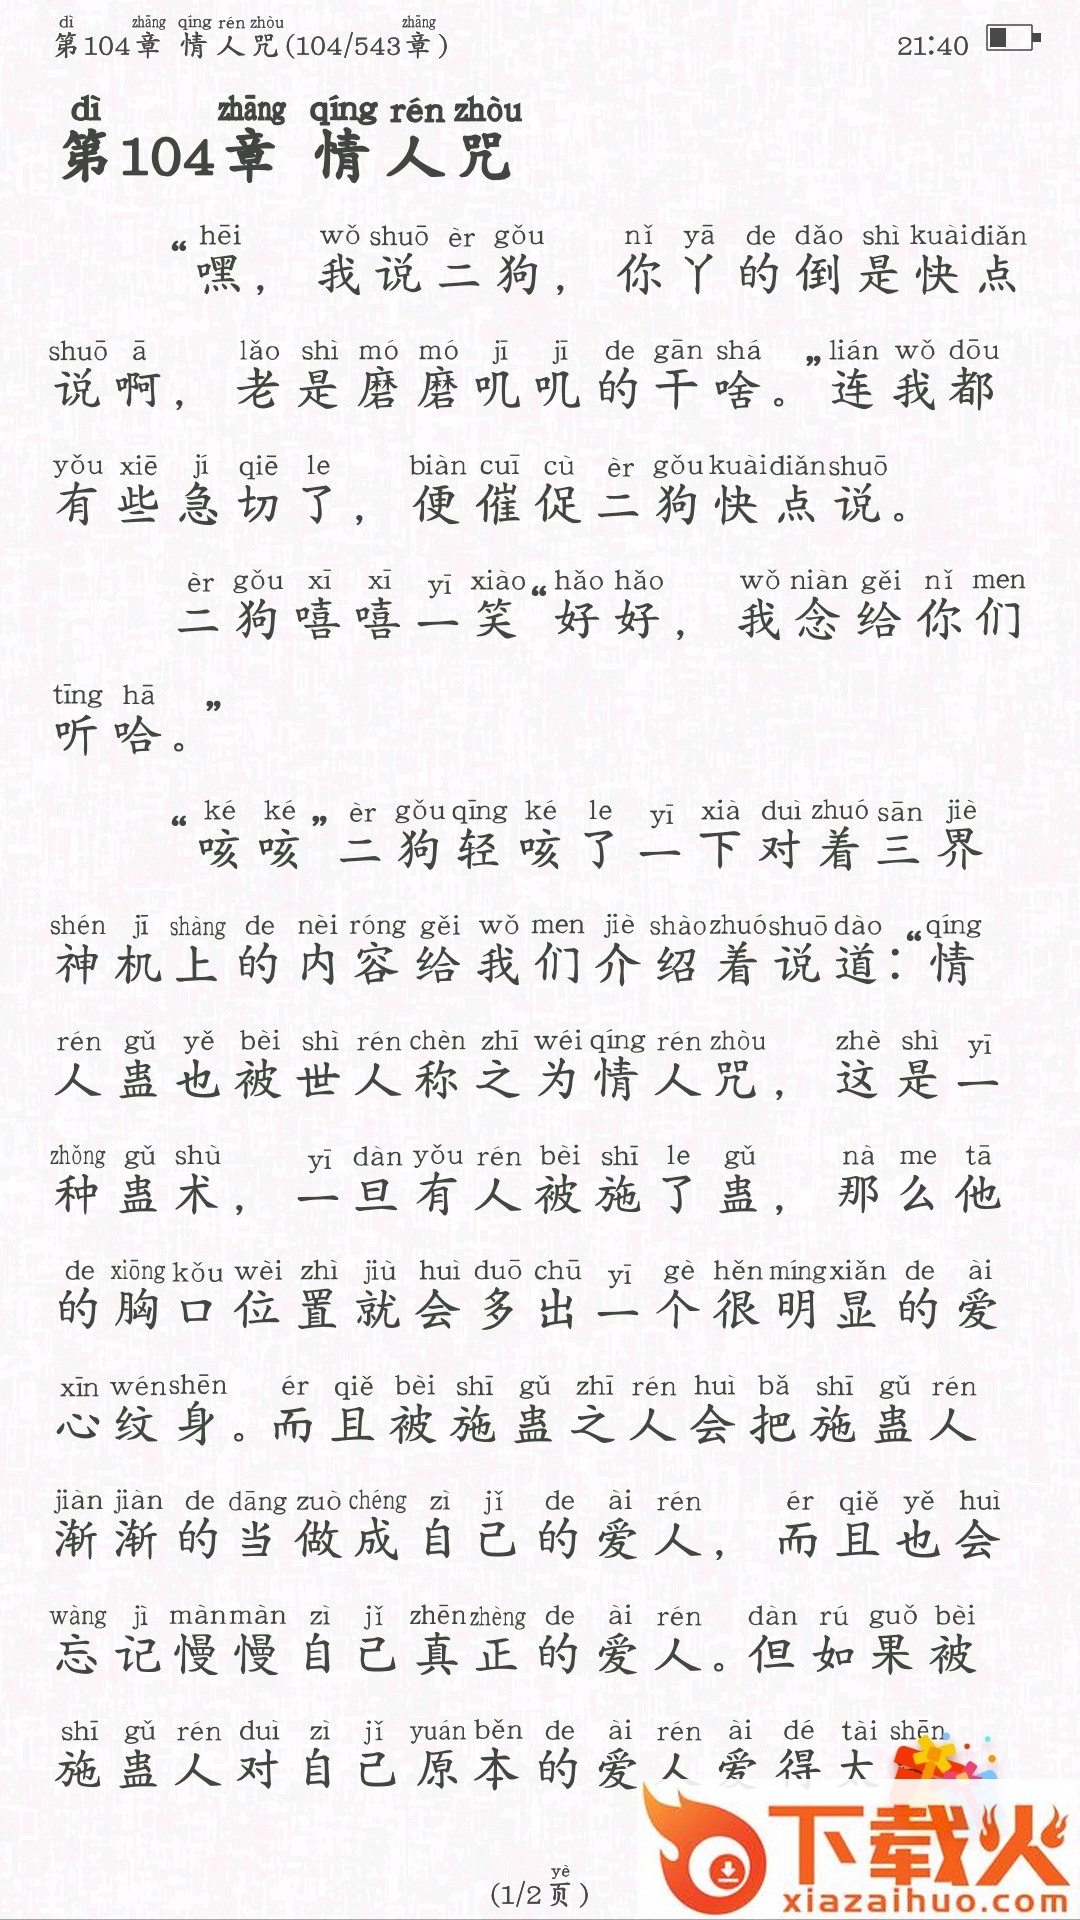 dì zhāng qíng rén zhòu zhāng
第104章 情人咒(104/543章) 21:40
dì zhāng qíng rén zhòu
第104章 情人咒
hēi wǒ shuō èr gǒu nǐ yā de dǎo shì kuài diǎn
“嘿，我说二狗，你丫的倒是快点
shuō ā lǎo shì mó mó jī jī de gān shá lián wǒ dōu
说啊，老是磨磨叽叽的干啥。”连我都
yǒu xiē jí qiē le biàn cuī cù èr gǒu kuài diǎn shuō
有些急切了，便催促二狗快点说。
èr gǒu xī xī yī xiào hǎo hǎo wǒ niàn gěi nǐ men
二狗嘻嘻一笑“好好，我念给你们
tīng hā
听哈。”
ké ké èr gǒu qīng ké le yī xià duì zhuó sān jiè
“咳咳”二狗轻咳了一下对着三界
shén jī shàng de nèi róng gěi wǒ men jiè shào zhuó shuō dào qíng
神机上的内容给我们介绍着说道：“情
rén gǔ yě bèi shì rén chèn zhī wéi qíng rén zhòu zhè shì yī
人蛊也被世人称之为情人咒，这是一
zhǒng gǔ shù yī dàn yǒu rén bèi shī le gǔ nà me tā
种蛊术，一旦有人被施了蛊，那么他
de xiōng kǒu wèi zhì jiù huì duō chū yī gè hěn míng xiǎn de ài
的胸口位置就会多出一个很明显的爱
xīn wén shēn ér qiě bèi shī gǔ zhī rén huì bǎ shī gǔ rén
心纹身。而且被施蛊之人会把施蛊人
jiàn jiàn de dāng zuò chéng zì jǐ de ài rén ér qiě yě huì
渐渐的当做成自己的爱人，而且也会
wàng jì màn màn zì jǐ zhēn zhèng de ài rén dàn rú guǒ bèi
忘记慢慢自己真正的爱人。但如果被
shī gǔ rén duì zì jǐ yuán běn de ài rén ài dé tài shēn
施蛊人对自己原本的爱人爱得太
yè
(1/2页)
下载火
xiazaihuo.com